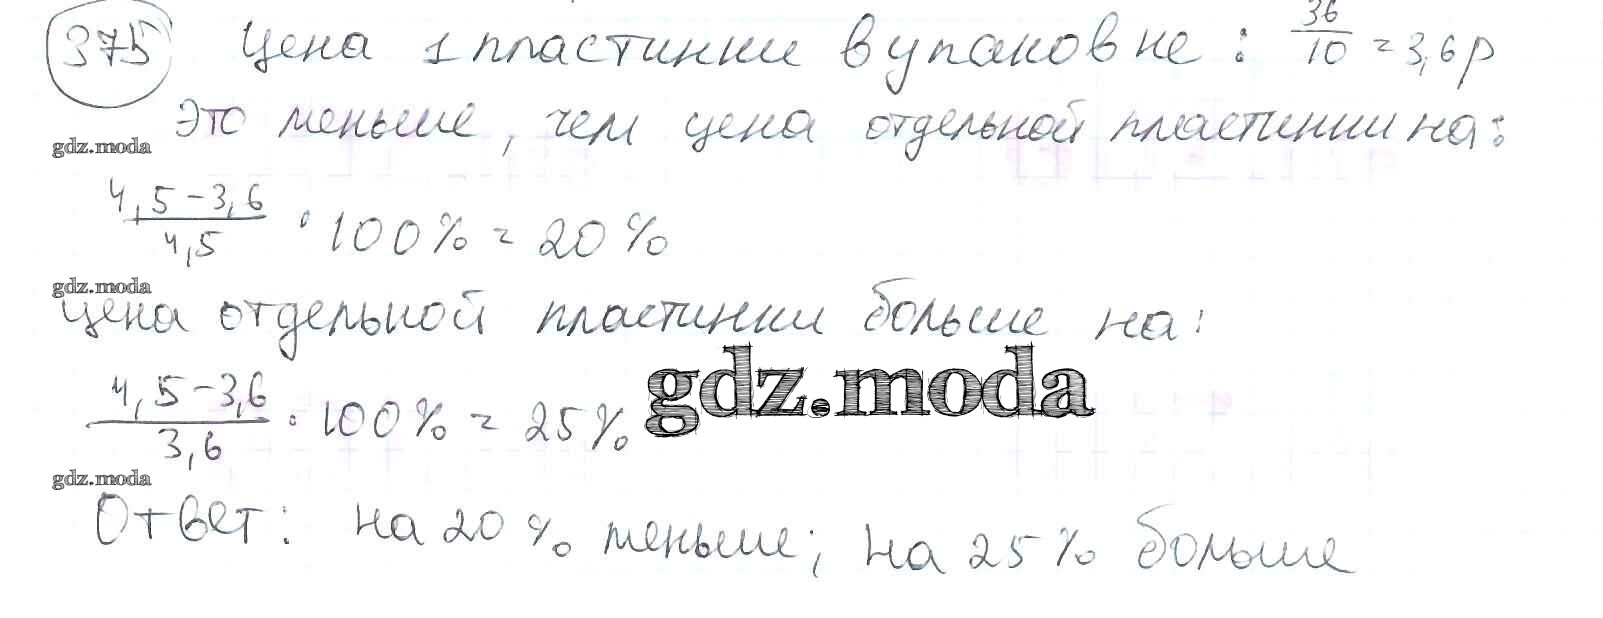 375 Цена 1 пластинки в упаковке: 36/10 = 3,6 р
Это меньше, чем цена отдельной пластинки на:
gdz.moda
4,5-3,6/4,5 · 100% = 20%
gdz.moda
Цена отдельной пластинки больше на:
gdz.moda
4,5-3,6/3,6 · 100% = 25%
gdz.moda
Ответ: на 20% меньше; на 25% больше